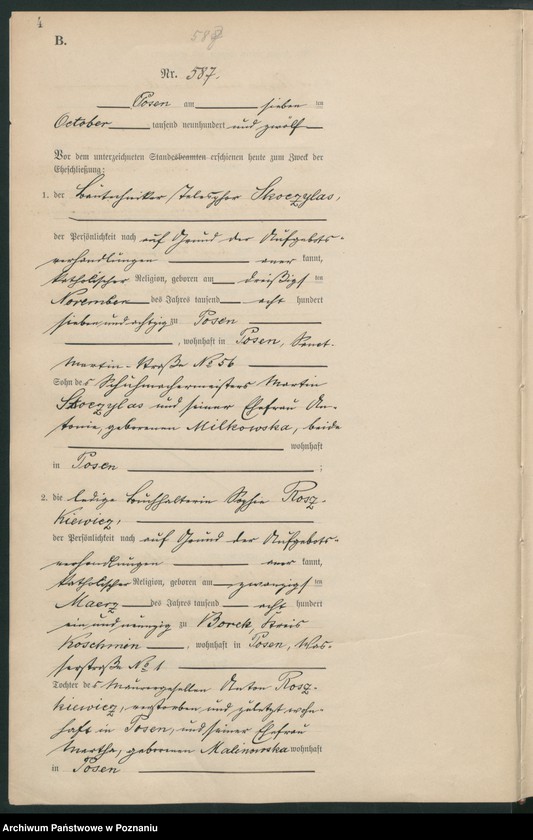 4
B.
588
Nr. 587.
Posen am sieben ten
October tausend neunhundert und zwölf
Vor dem unterzeichneten Standesbeamten erschienen heute zum Zweck der
Eheschließung:
1. der Bautechniker Telesphor Skoczylas,
der Persönlichkeit nach auf Grund der Aufgebots-
verhandlungen aner kannt,
katholischer Religion, geboren am dreißigs ten
November des Jahres tausend acht hundert
siebenundachtzig zu Posen
, wohnhaft in Posen, Sanct
Martin-Straße № 56
Sohn des Schuhmachermeisters Martin
Skoczylas und seiner Ehefrau An-
tonie, geborenen Milkowska, beide
wohnhaft
in Posen ;
2. die ledige Buchhalterin Sophie Rosz-
kiewicz,
der Persönlichkeit nach auf Grund der Aufgebots-
verhandlungen aner kannt,
katholischer Religion, geboren am zwanzigs ten
Maerz des Jahres tausend acht hundert
einundneunzig zu Borek, Kreis
Koschmin , wohnhaft in Posen, Was-
serstraße № 1
Tochter des Maurergesellen Anton Rosz-
kiewicz, verstorben und zuletzt wohn-
haft in Posen, und seiner Ehefrau
Martha, geborenen Malinowska wohnhaft
in Posen
Archiwum Państwowe w Poznaniu